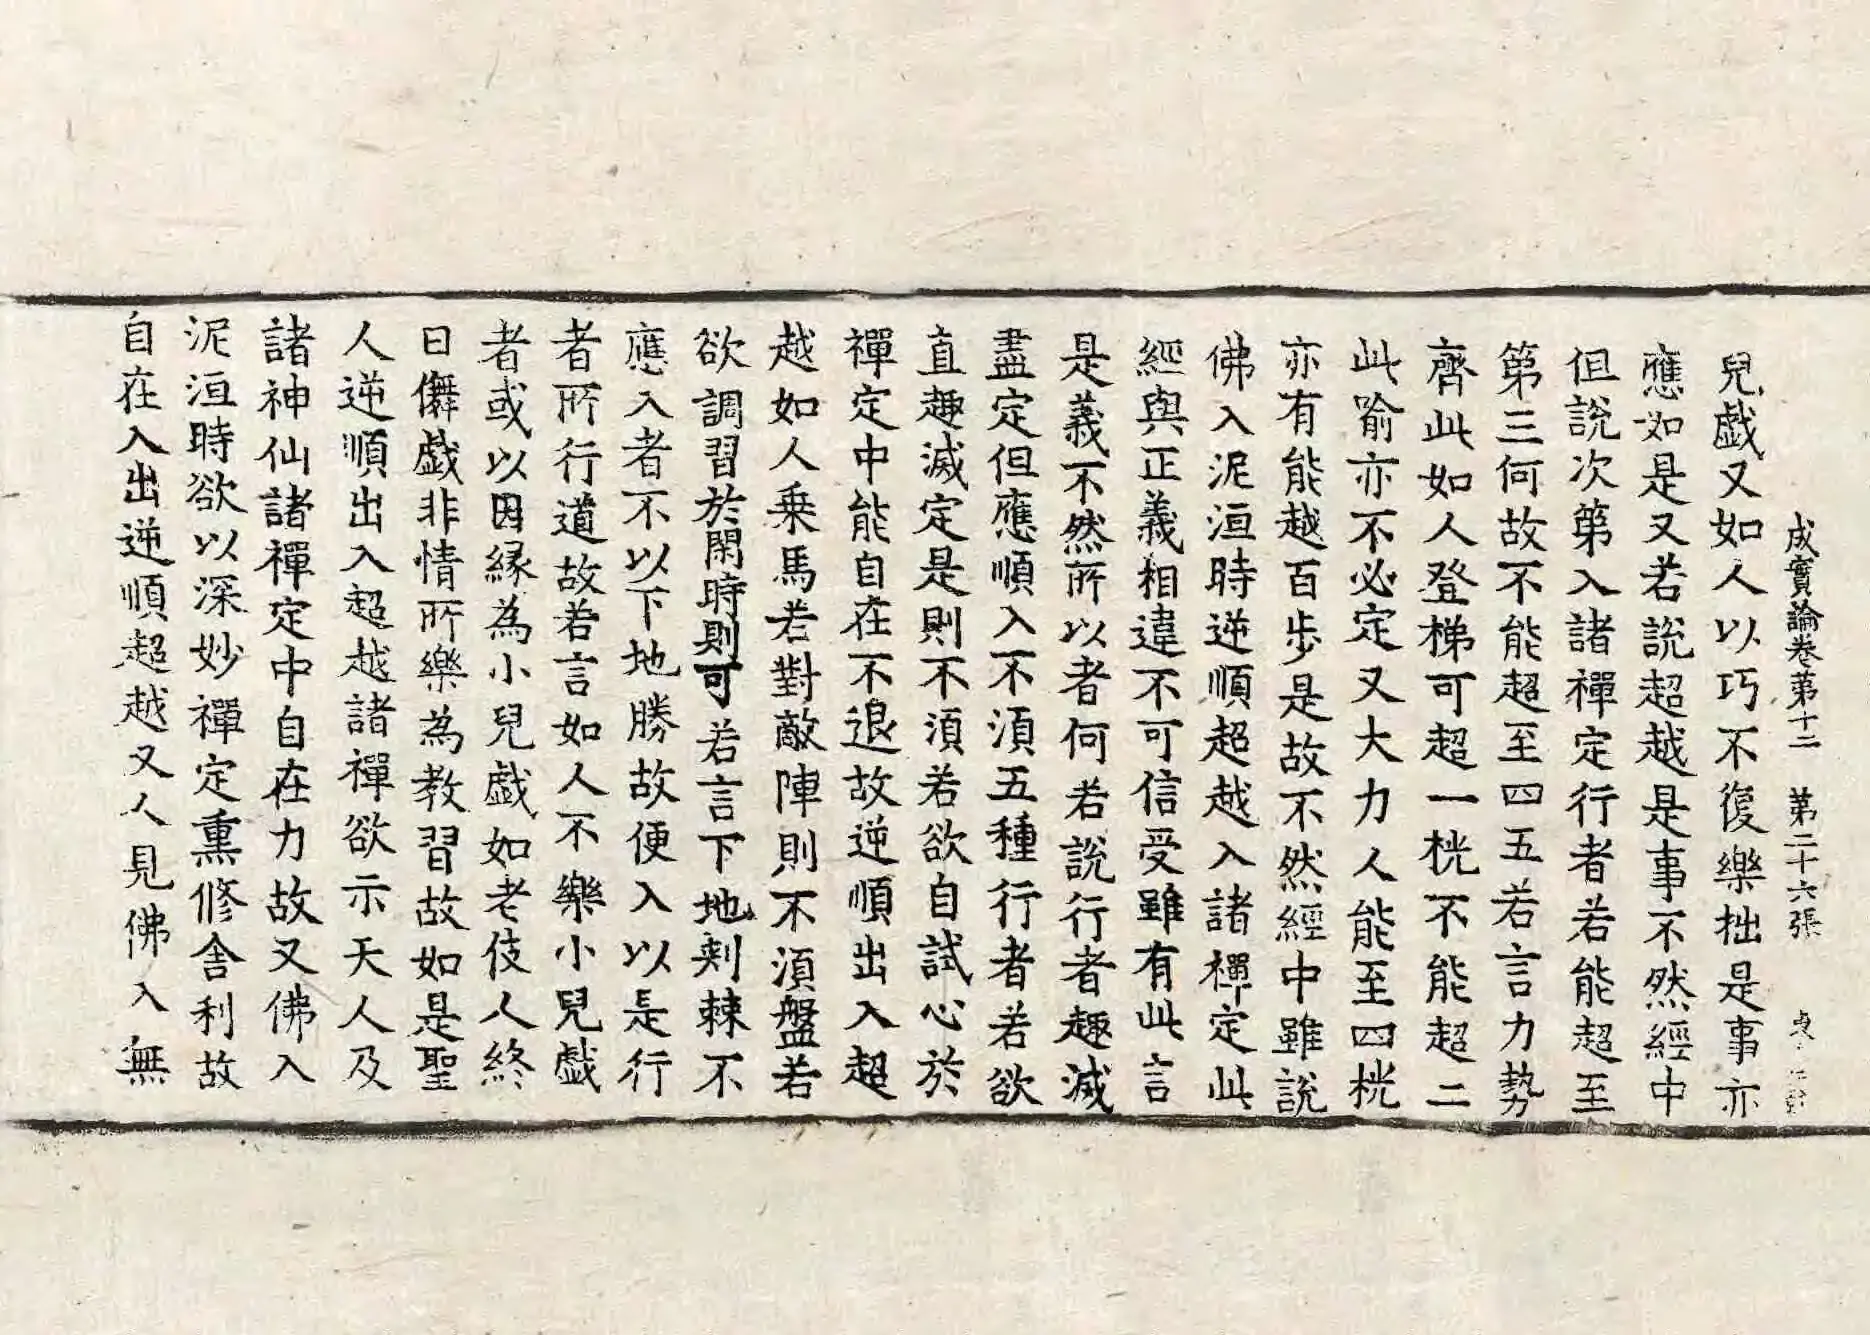 成實論卷第十二　第二十六張
兒戯又如人以巧不復樂拙是事亦
應如是又若説超越是事不然經中
但説次第入諸禪定行者若能超至
第三何故不能超至四五若言力勢
齊此如人登梯可超一桄不能超二
此喻亦不必定又大力人能至四桄
亦有能越百步是故不然經中雖説
佛入泥洹時逆順超越入諸禪定此
經與正義相違不可信受雖有此言
是義不然所以者何若説行者趣滅
盡定但應順入不須五種行者若欲
直趣滅定是則不須若欲自試心於
禪定中能自在不退故逆順出入超
越如人乗馬若對敵陣則不須盤若
欲調習於閑時則可若言下地刾棘不
應入者不以下地勝故便入以是行
者所行道故若言如人不樂小兒戯
者或以因縁為小兒戯如老伎人終
日儛戯非情所樂為教習故如是聖
人逆順出入超越諸禪欲示天人及
諸神仙諸禪定中自在力故又佛入
泥洹時欲以深妙禪定熏修舍利故
自在入出逆順超越又人見佛入無